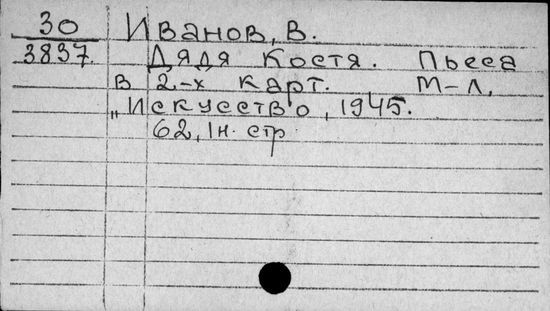 30 Иванов, В.
3837. Дядя Костя. Пьеса
в 2-х карт. М-Л,
„Искусство, 1945.
62, 1н. стр